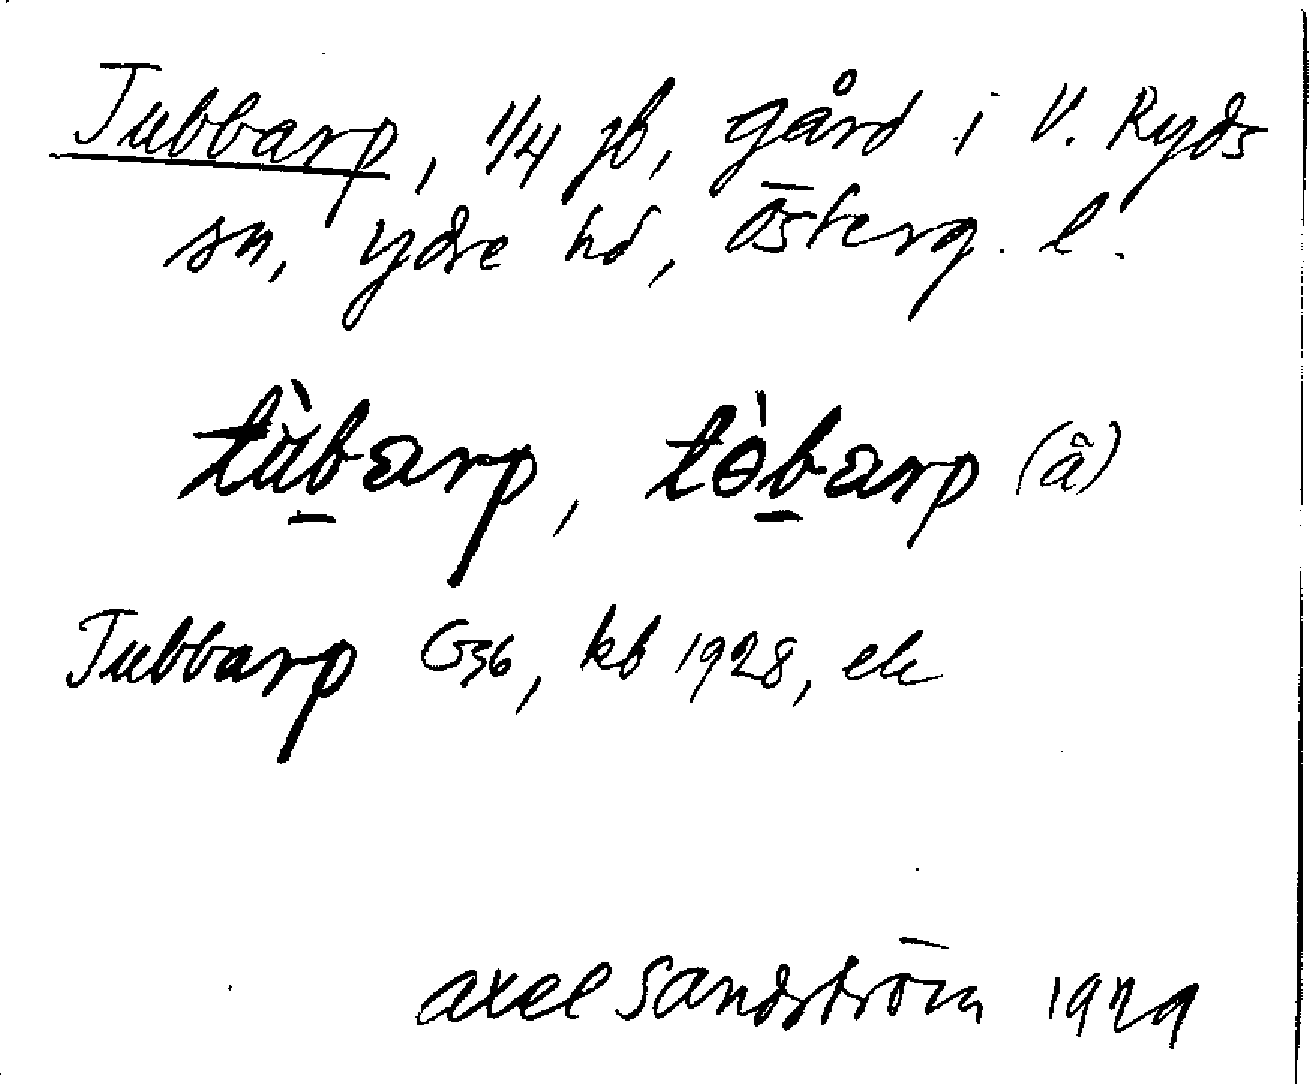 Tubbarp, 1/4 jb, gård i V. Ryds
sn, ydre hd, Österg. l.
tùb̲arp, tòb̲arp (å)
Tubbarp G36, kb 1928, ek
axel Sandström 1929